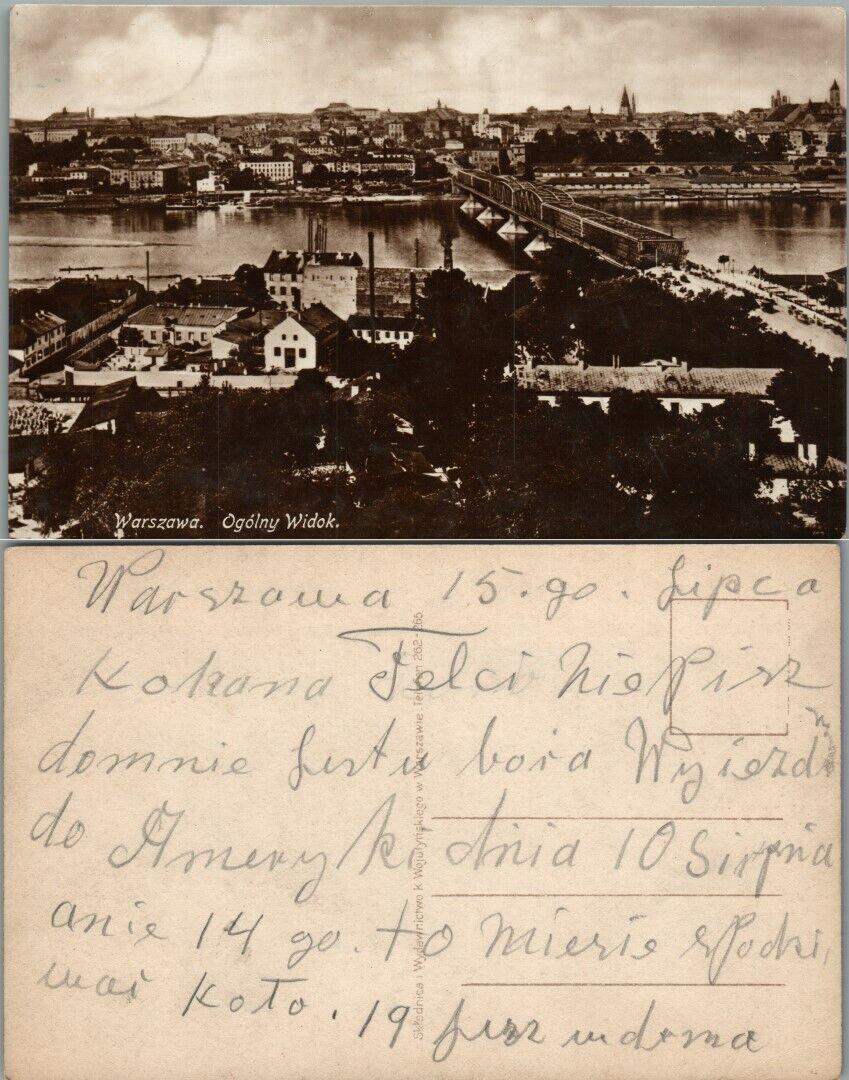 Warszawa. Ogólny Widok.
Warszawa 15.go. Lipca
Kohana Felci NiePisz
domnie Lestu boia Wyiezdr
do Ameryki dnia 10 Sirpnia
anie 14 go. to Miesie sPodzi,
wai Koło. 19 jusz w doma
Składnica i Wydawnictwo K Wojutyńskiego w Warszawie Telefon 262-265